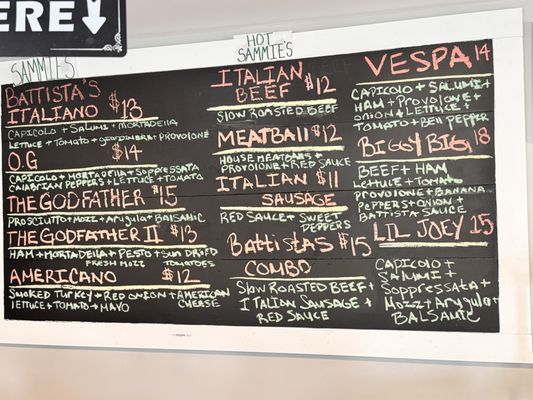 ERE
SAMMIES
BATTISTA'S
ITALIANO $13
CAPICOLO + SALUMI + MORTADELLA
LETTUCE + TOMATO + GIARDINERA + PROVOLONE
O.G $14
CAPICOLO + MORTADELLA + SOPPRESSATA
CALABRIAN PEPPERS + LETTUCE + TOMATO
THE GODFATHER $15
PROSCIUTTO + MOZZ + ARUGULA + BALSAMIC
THE GODFATHER II $13
HAM + MORTADELLA + PESTO + SUN DRIED
FRESH MOZZ TOMATOES
AMERICANO $12
SMOKED TURKEY + RED ONION + AMERICAN
LETTUCE + TOMATO + MAYO CHEESE
HOT
SAMMIE'S
ITALIAN $12
BEEF
SLOW ROASTED BEEF
MEATBALL $12
HOUSE MEATBALLS +
PROVOLONE + RED SAUCE
ITALIAN $11
SAUSAGE
RED SAUCE + SWEET
PEPPERS
BATTISTAS $15
COMBO
SLOW ROASTED BEEF +
ITALIAN SAUSAGE +
RED SAUCE
VESPA 14
CAPICOLO + SALUMI +
HAM + PROVOLONE +
ONION + LETTUCE +
TOMATO + BELL PEPPER
BIGGY BIG 18
BEEF + HAM
LETTUCE + TOMATO
PROVOLONE + BANANA
PEPPERS + ONION +
BATTISTA SAUCE
LIL JOEY 15
CAPICOLO +
SALUMI +
SOPPRESSATA +
MOZZ + ARUGULA +
BALSAMIC